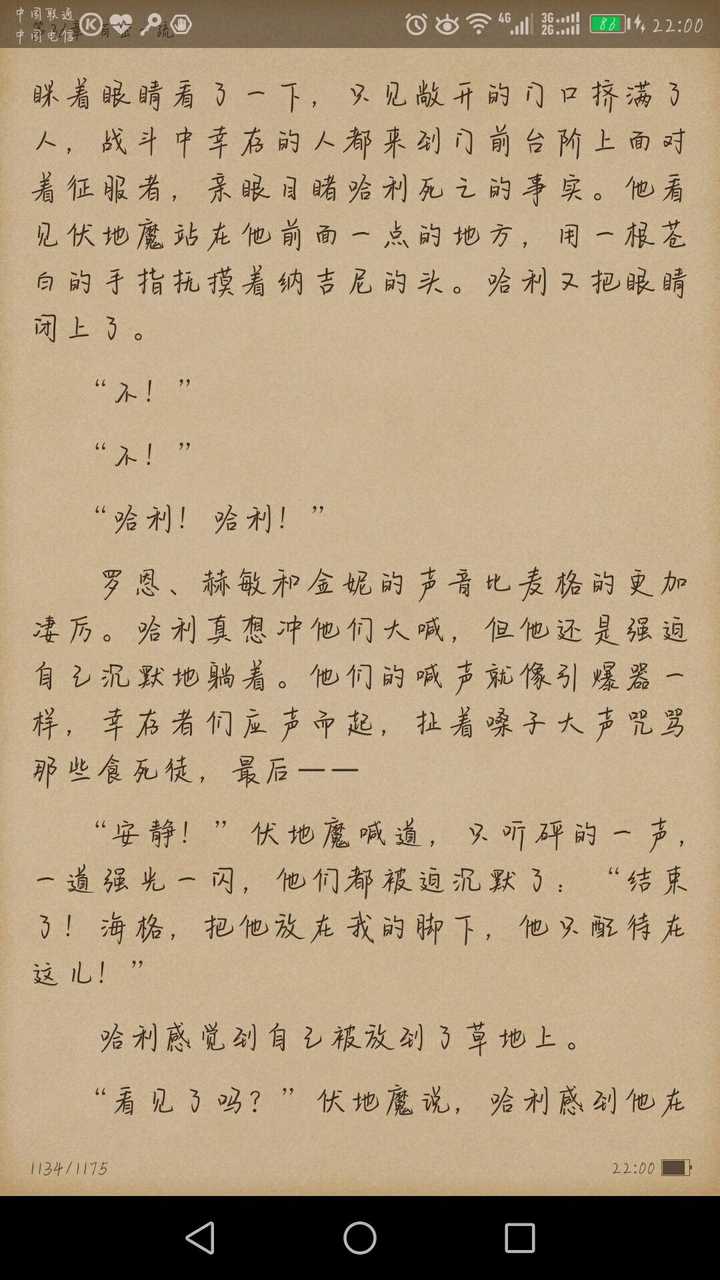 中国联通
中国电信
4G 3G 2G 86 22:00
眯着眼睛看了一下，只见敞开的门口挤满了
人，战斗中幸存的人都来到门前台阶上面对
着征服者，亲眼目睹哈利死之的事实。他看
见伏地魔站在他前面一点的地方，用一根苍
白的手指抚摸着纳吉尼的头。哈利又把眼睛
闭上了。
“不！”
“不！”
“哈利！哈利！”
罗恩、赫敏和金妮的声音比麦格的更加
凄厉。哈利真想冲他们大喊，但他还是强迫
自己沉默地躺着。他们的喊声就像引爆器一
样，幸存者们应声而起，扯着嗓子大声咒骂
那些食死徒，最后——
“安静！”伏地魔喊道，只听砰的一声，
一道强光一闪，他们都被迫沉默了：“结束
了！海格，把他放在我的脚下，他只配待在
这儿！”
哈利感觉到自己被放到了草地上。
“看见了吗？”伏地魔说，哈利感到他在
1134/1175 22:00